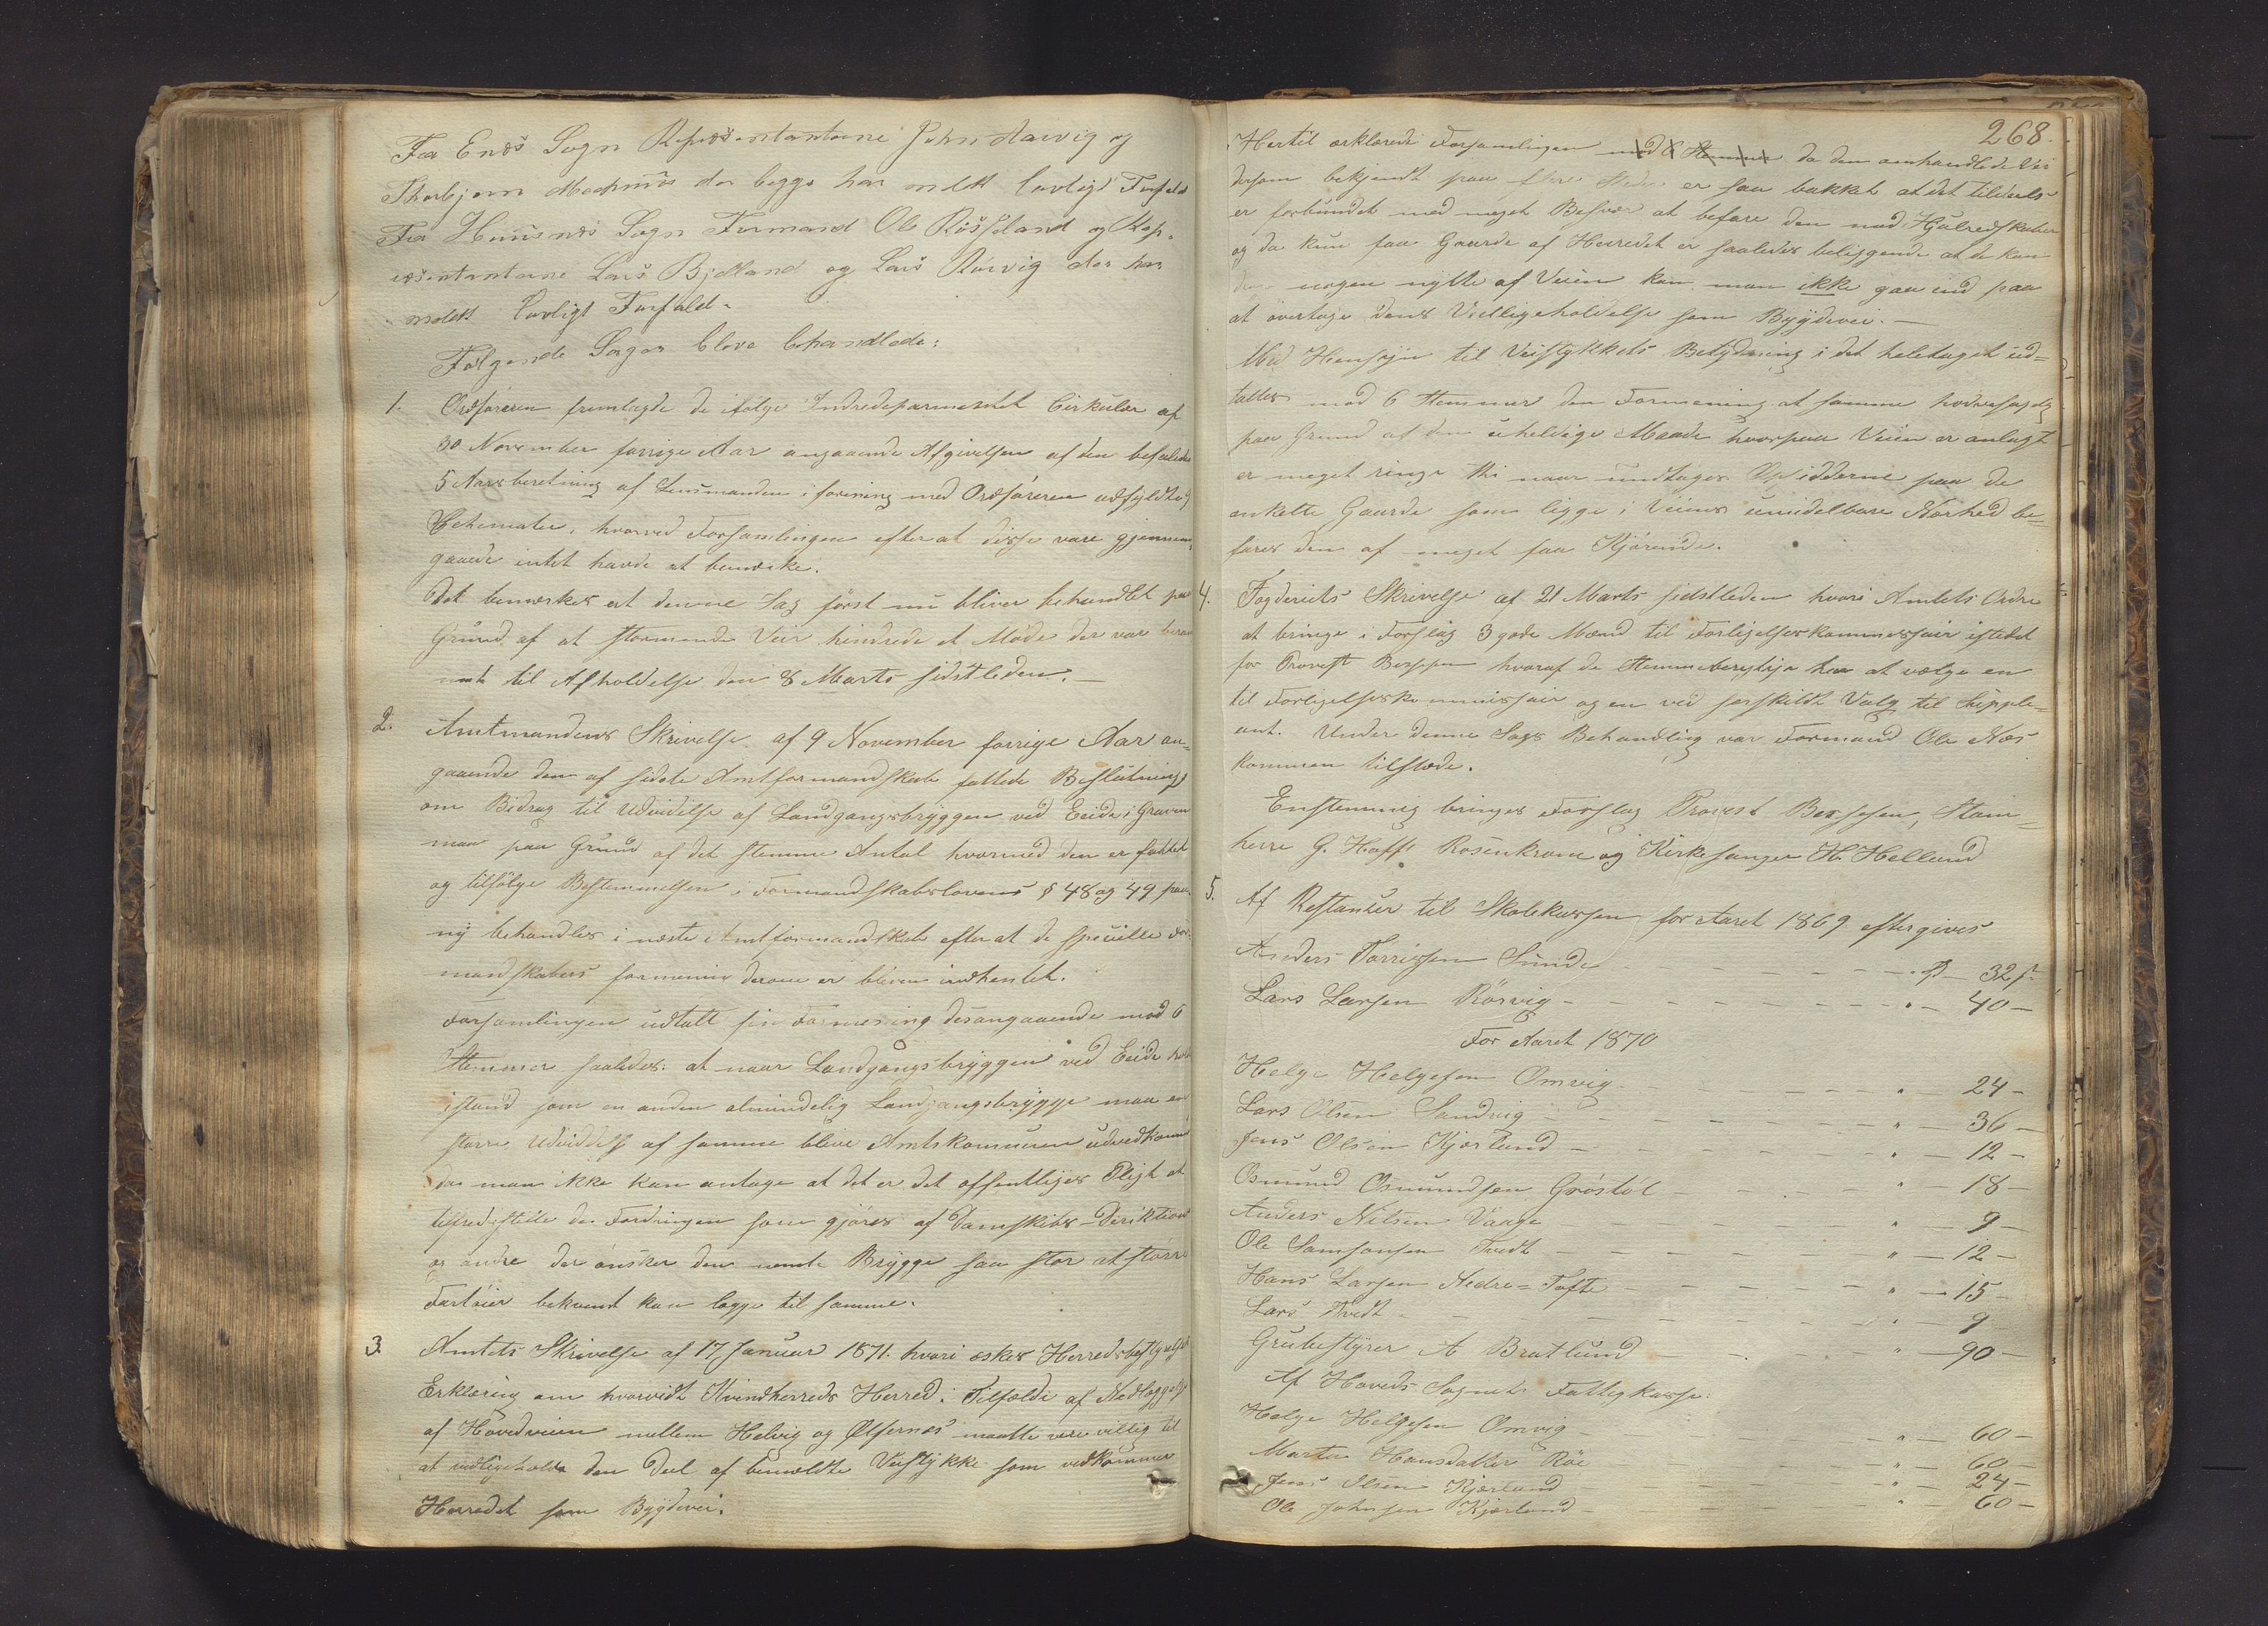 Fra Enæs Sogn Repræsentanterne John Aarvig og
Thorbjørn Mechnæs der begge har meldt lovligt Forfald
Fra Huusnæs Sogn Formand Ole Røsseland og Rep-
ræsentanterne Lars Bjelland og Lars Rørvig der har
meldt lovligt Forfald.
Følgende Sager bleve behandlede:
1. Ordføreren fremlagde de ifølge Indredeparmentet Cirkulær af
30 November forrige Aar angaaende Afgivelsen af den befalede
5 Aarsberetning af Lensmanden i forening med Ordføreren udfyldte
Schemater, hvorved Forsamlingen efter at disse vare gjennem-
gaaede intet havde at bemærke.
Det bemærkes at denne Sag først nu bliver behandlet paa
Grund af at stormende Veir hindrede et Møde der var beram
met til Afholdelse den 8 Marts sidstleden.—
2. Amtmandens Skrivelse af 9 November forrige Aar an-
gaaende den af sidste Amtformandskab fattede Beslutning
om Bidrag til Udvidelse af Landgangsbryggen ved Eide i Graven
maa paa Grund af det stemme Antal hvormed den er fattet
og tilfølge Bestemmelsen i Formandskabslovens § 48 og 49 paa
ny behandles i næste Amtformandskab efter at de specielle For-
mandskabers formening derom er bleven indhentet.
Forsamlingen udtalt sin Formening desangaaende med 6
Stemmer saaledes: at naar Landgangsbryggen ved Eide holdes
istand som en anden almindelig Landgangsbrygge maa en
større Udvidelse af samme blive Amtskomunen uvedkommende
da man ikke kan antage at det er det offentliges Pligt at
tilfredsstille de Fordringer som gjøres af Damskibs-Deriktioner
og andre der ønsker den nævnte Brygge saa stor at større
Fartøier bekvemt kan lægge til samme.
3. Amtets Skrivelse af 17 Januar 1871. hvori æskes Herredsbestyrelsens
Erklæring om hvorvidt Kvindherreds Herred i Tilfælde af Nedlæggelse
af Hovedveien mellem Helvig og Ølfernæs maatte være villig til
at vedligeholde den Deel af bemeldte Veistykke som vedkommer
Herredet som Bygdevei.
268.
Hertil erklærede Forsamlingen med 6 Stemmer da den omhandlede Vei
dersom bekjendt paa flere Steder er saa bakket at det tildeels
er forbundet med meget Besvær at befare den med Hjulredskaber
og da kun faa Gaarde af Herredet er saaledes beliggende at de kan
nogen nytte af Veien kan man ikke gaa ind paa
at overtage dens Vedligeholdelse som Bygdevei.—
Med Hensyn til Veistykkets Betydning i det heletaget ud-
taltes med 6 Stemmer den Formening at samme
paa Grund af den uheldige Maade hvorpaa Veien er anlagt
er meget ringe thi naar undtages Opsidderne paa de
enkelte Gaarde som ligge i Veiens umidelbare Nærhed be-
fares den af meget faa Kjørende.
4. Fogderiets Skrivelse af 21 Marts sidstleden hvori Amtets Ordre
at bringe i Forslag 3 gode Mænd til Forligelseskommissair istedet
for Provst Bersesen hvoraf de Stemmeberettige har at vælge en
til Forligelseskommissair og en ved særskildt Valg til Supple-
ant. Under denne Sags Behandling var Formand Ole Næs
kommen tilstæde.
Enstemmig bringes Forslag Provst Bersesen, Stam-
herre G. Hoff Rosenkrone og Kirkesanger H. Helland
5. Af Restantser til Skolekassen for Aaret 1869 eftergives
Anders Torrissen Sunde — 32 ſ.
Lars Larsen Rørvig — " — 40 —
For Aaret 1870
Helge Helgesen Omvig — " — 24 —
Lars Olsen Sandvig — " — 36 —
Jens Olsen Kjærland — " — 12 —
Osmund Osmundsen Grøstøl — " — 18 —
Anders Nilsen Vaage — " — 9 —
Ole Samsonsen Tvedt — " — 12 —
Hans Larsen Nedre=Tofte — " — 15 —
Lars Tvedt — " — 9 —
Grubestyrer A Bratlund — " — 90 —
Af Hoveds Sognets Fattigkasse.
Helge Helgesen Omvig — " — 60 —
Marta Hansdatter Røe — " — 60 —
Jens Olsen Kjærland — " — 24 —
Ole Johnsen Kjærland — " — 60 —